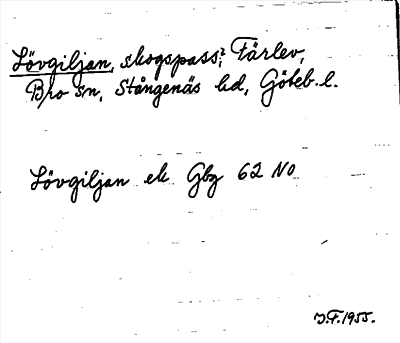 Lövgiljan, skogspass?, Färlev,
Bro sn, Stångenäs hd, Göteb. l.
Lövgiljan ek Gbg 62 NO
J.F. 1955.